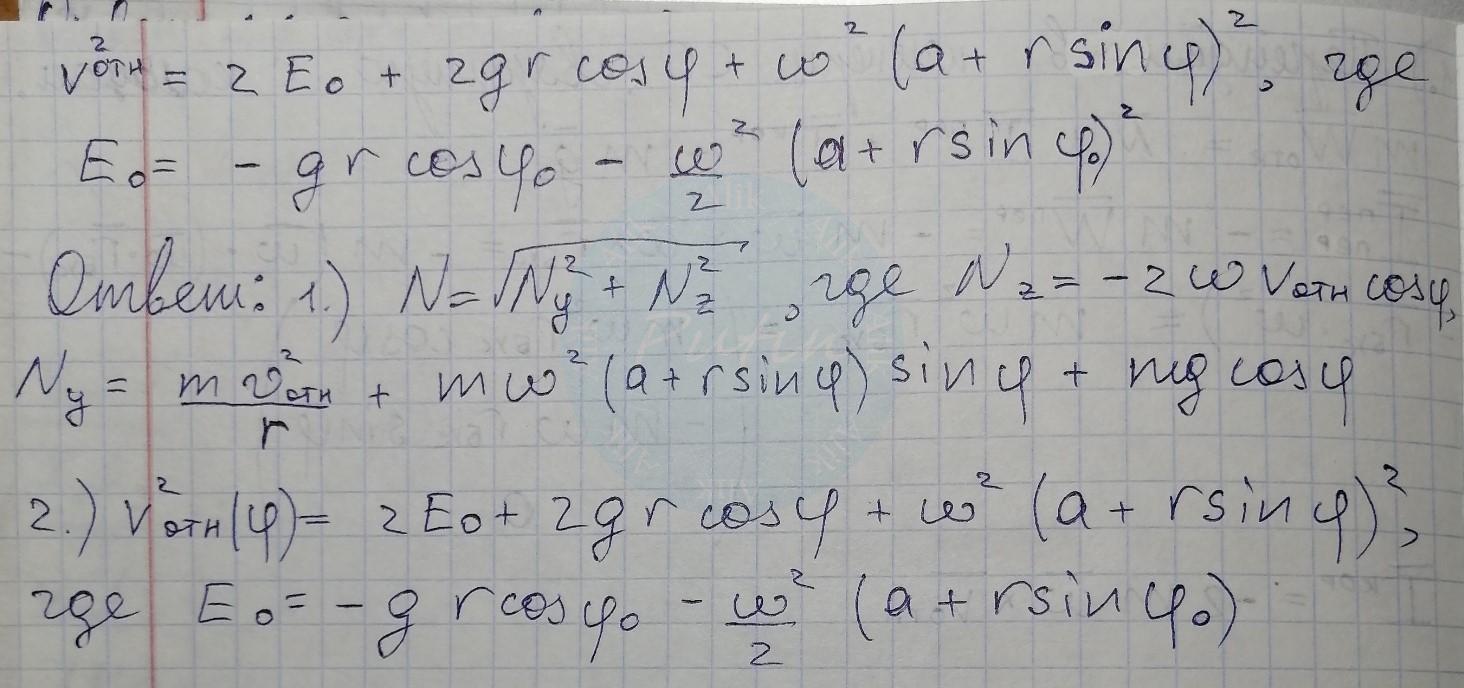 v²отн = 2 E₀ + 2gr cosφ + ω² (a + r sinφ)², где
E₀ = - gr cosφ₀ - ω²/2 (a + r sinφ₀)²
Ответ: 1.) N = √(N²y + N²z), где Nz = -2ωvотн cosφ,
Ny = mv²отн/r + mω² (a + r sinφ) sinφ + mg cosφ
2.) v²отн(φ) = 2E₀ + 2gr cosφ + ω² (a + r sinφ)²,
где E₀ = - g r cosφ₀ - ω²/2 (a + r sinφ₀)